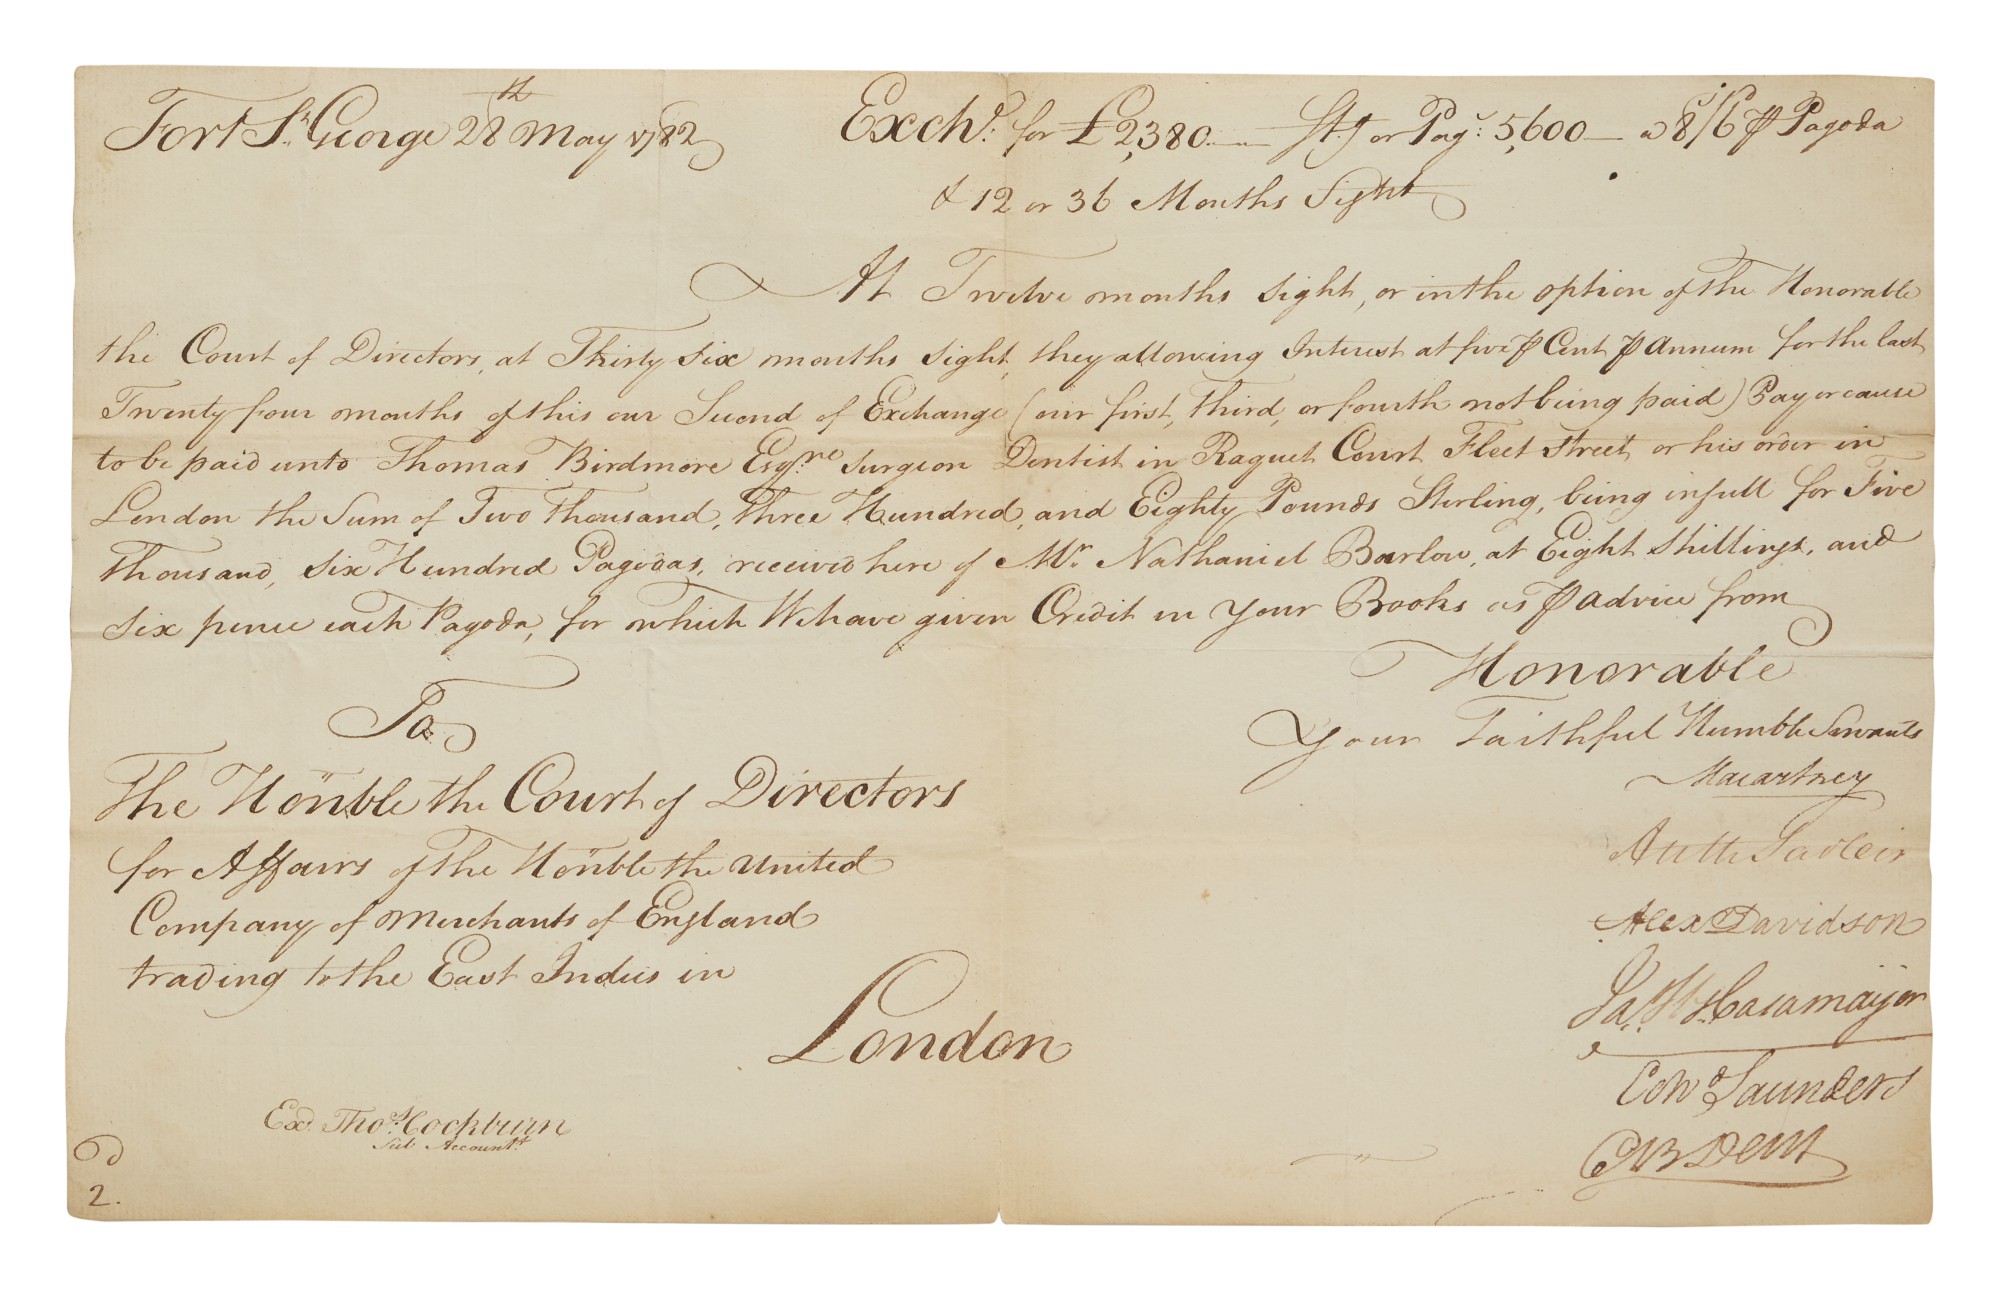 Fort St. George 28th May 1782
Exchd. for £2,380 — Stg. or Pags. 5,600 — a 8/6 ⅌ Pagoda
& 12 or 36 Months Sight
At Twelve months sight, or in the option of the Honorable
the Court of Directors, at Thirty six months sight, they allowing Interest at five ⅌ Cent ⅌ Annum for the last
Twenty four months of this our Second of Exchange (our first, third, or fourth not being paid) Pay or cause
to be paid unto Thomas Birdmore Esqre. Surgeon Dentist in Raquet Court Fleet Street or his order in
London the Sum of Two Thousand, Three Hundred, and Eighty Pounds Sterling, being in full for Five
Thousand, six Hundred Pagodas, received here of Mr. Nathaniel Barlow, at Eight Shillings, and
six pence each Pagoda, for which We have given Credit in your Books as ⅌ advice from
Honorable
Your Faithful Humble Servants
To
The Honble the Court of Directors
for Affairs of the Honble the United
Company of Merchants of England
trading to the East Indies in
London
Macartney
Anth Sadleir
Alexr Davidson
Jas. H. Casamaijor
Edwd Saunders
Dent
Exd. Thos. Cockburn
Sub Accountt.
2.